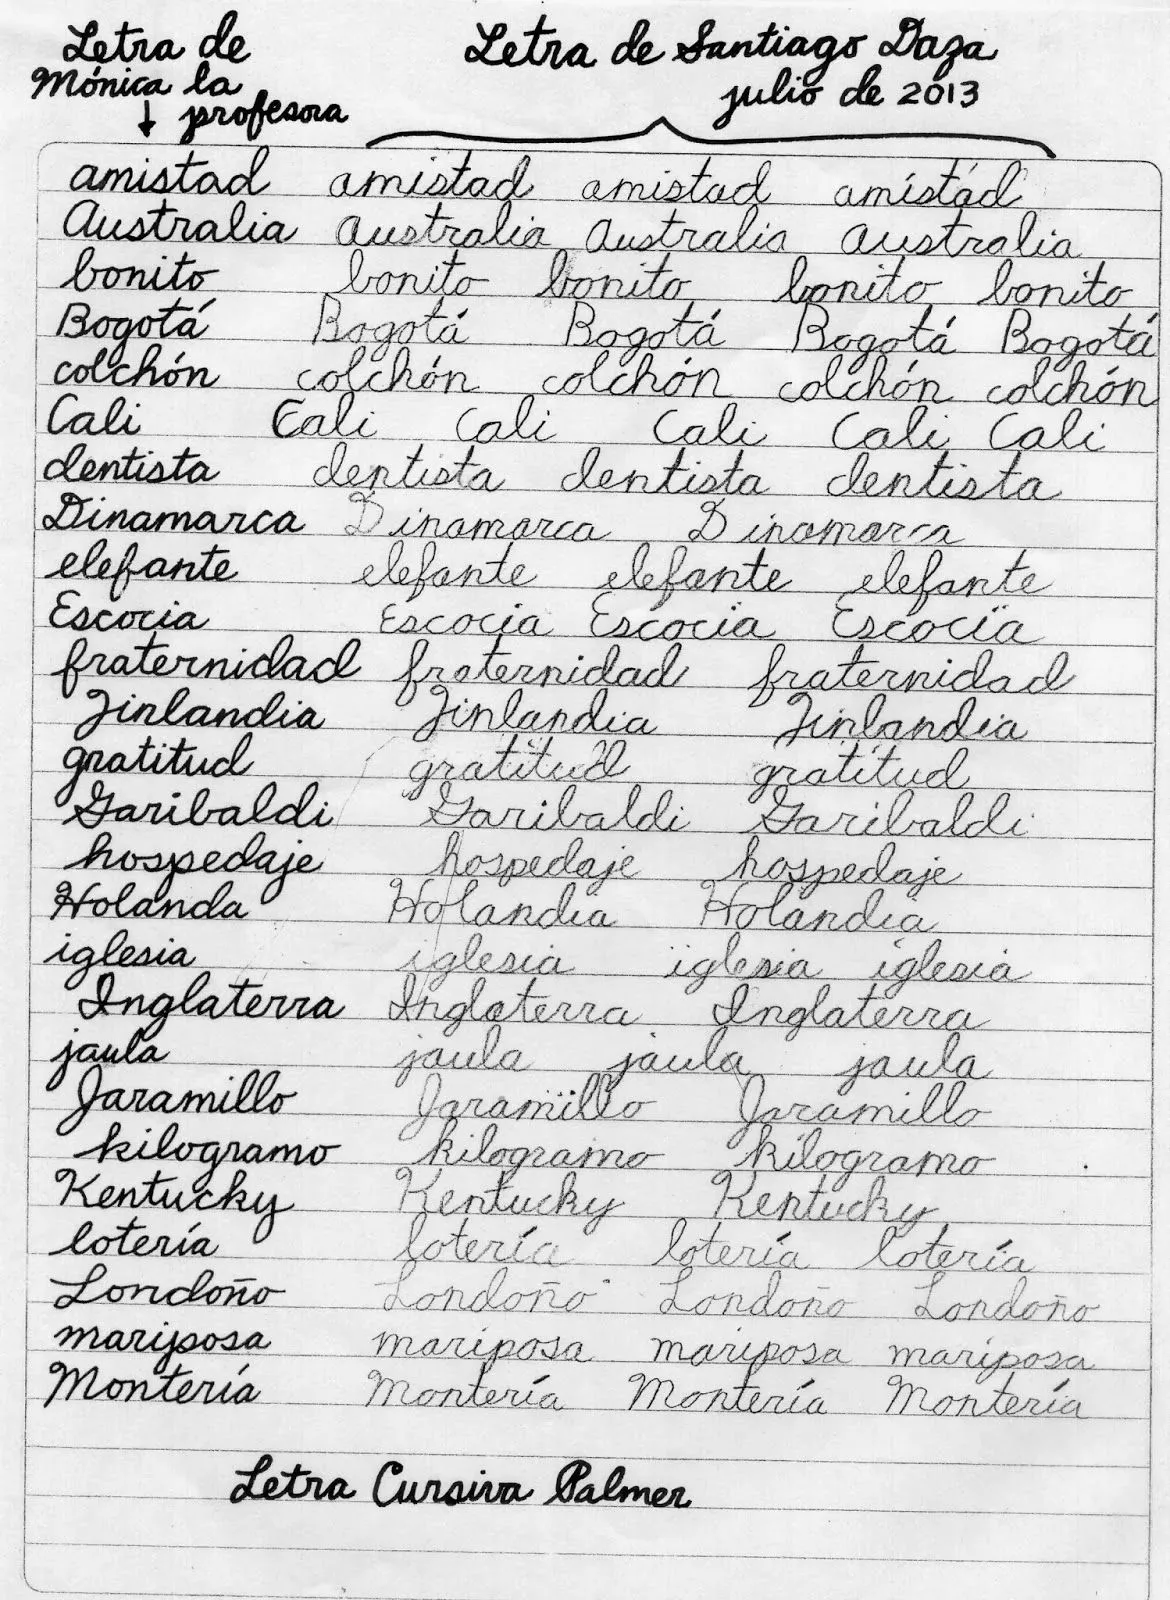 Letra de Letra de Santiago Daza
Mónica la julio de 2013
profesora
amistad amistad amistad amistad
Australia Australia Australia Australia
bonito bonito bonito bonito bonito
Bogotá Bogotá Bogotá Bogotá Bogotá
colchón colchón colchón colchón colchón
Cali Cali Cali Cali Cali Cali
dentista dentista dentista dentista
Dinamarca Dinamarca Dinamarca
elefante elefante elefante elefante
Escocia Escocia Escocia Escocia
fraternidad fraternidad fraternidad
Finlandia Finlandia Finlandia
gratitud gratitud gratitud
Garibaldi Garibaldi Garibaldi
hospedaje hospedaje hospedaje
Holanda Holandia Holandia
iglesia iglesia iglesia iglesia
Inglaterra Inglaterra Inglaterra
jaula jaula jaula jaula
Jaramillo Jaramillo Jaramillo
kilogramo kilogramo kilogramo
Kentucky Kentucky Kentucky
lotería lotería lotería lotería
Londoño Londoño Londoño Londoño
mariposa mariposa mariposa mariposa
Montería Montería Montería Montería
Letra Cursiva Palmer